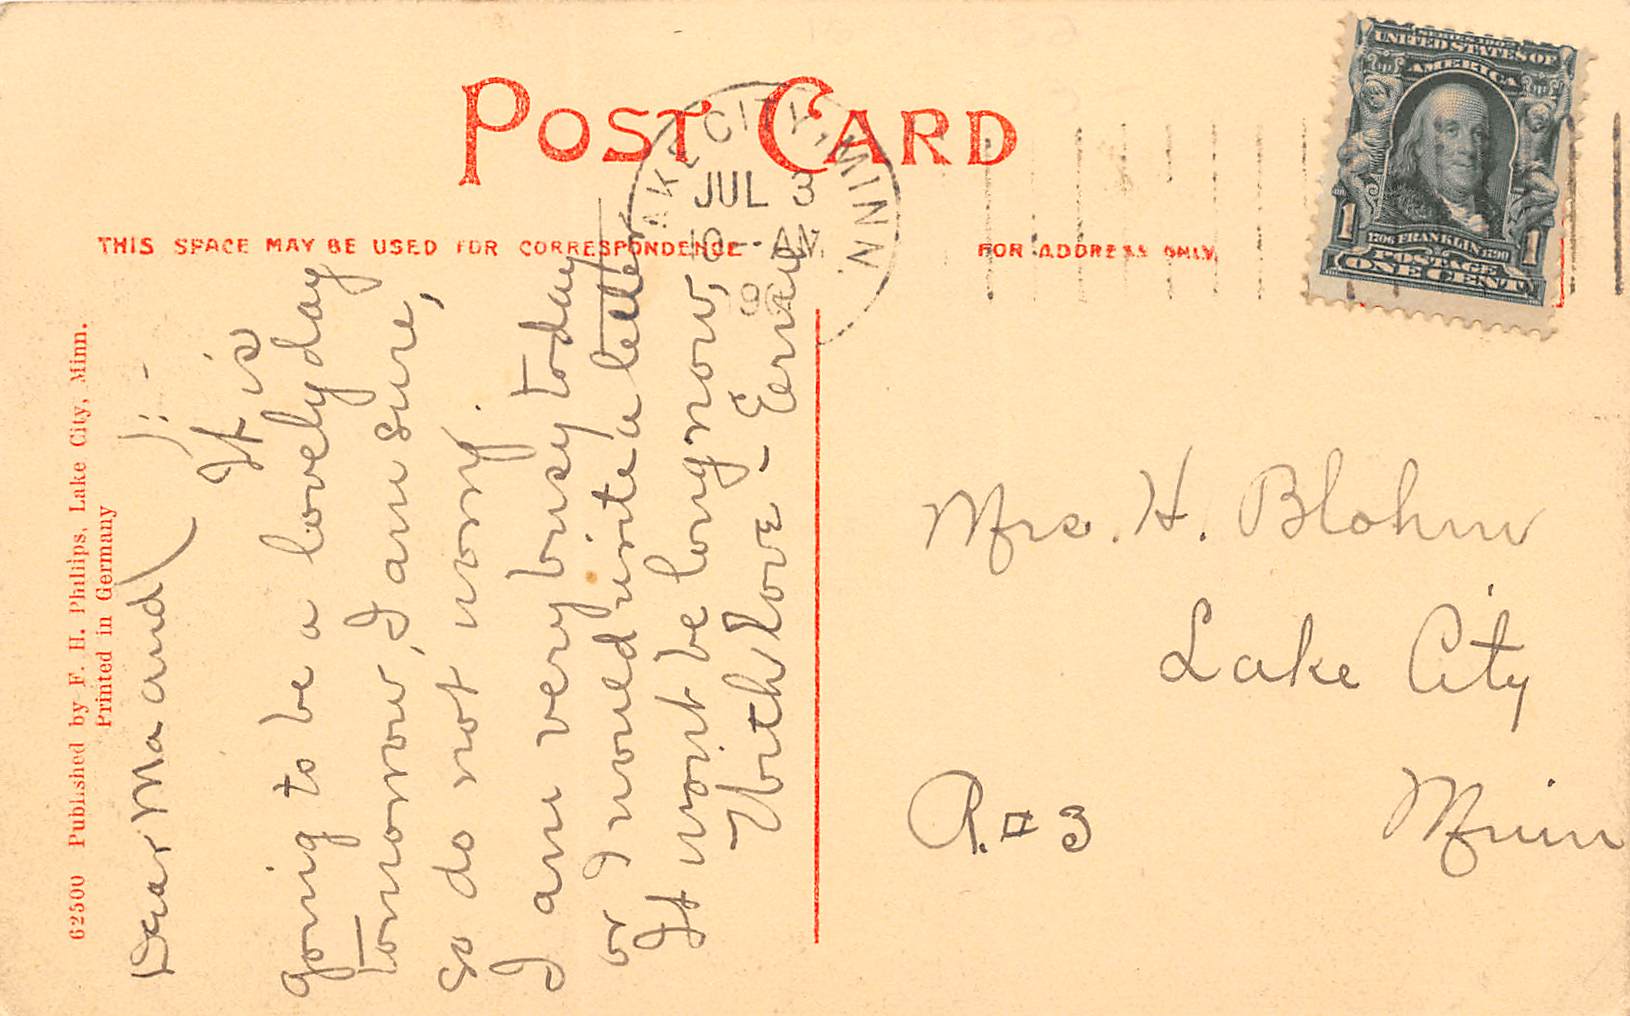 POST CARD
THIS SPACE MAY BE USED FOR CORRESPONDENCE
FOR ADDRESS ONLY.
LAKE CITY, MINN.
JUL 3
10-AM
SERIES 1902
UNITED STATES OF
AMERICA
1706 FRANKLIN 1790
POSTAGE
1 ONE CENT 1
62500 Published by F. H. Philips, Lake City, Minn.
Printed in Germany
Dear Ma and
It is
going to be a lovely day
tomorrow, I am sure,
so do not worry.
I am very busy today
or I would write a letter
It won't be long now,
With love -
Mrs. H. Blohm
Lake City
R. # 3 Minn